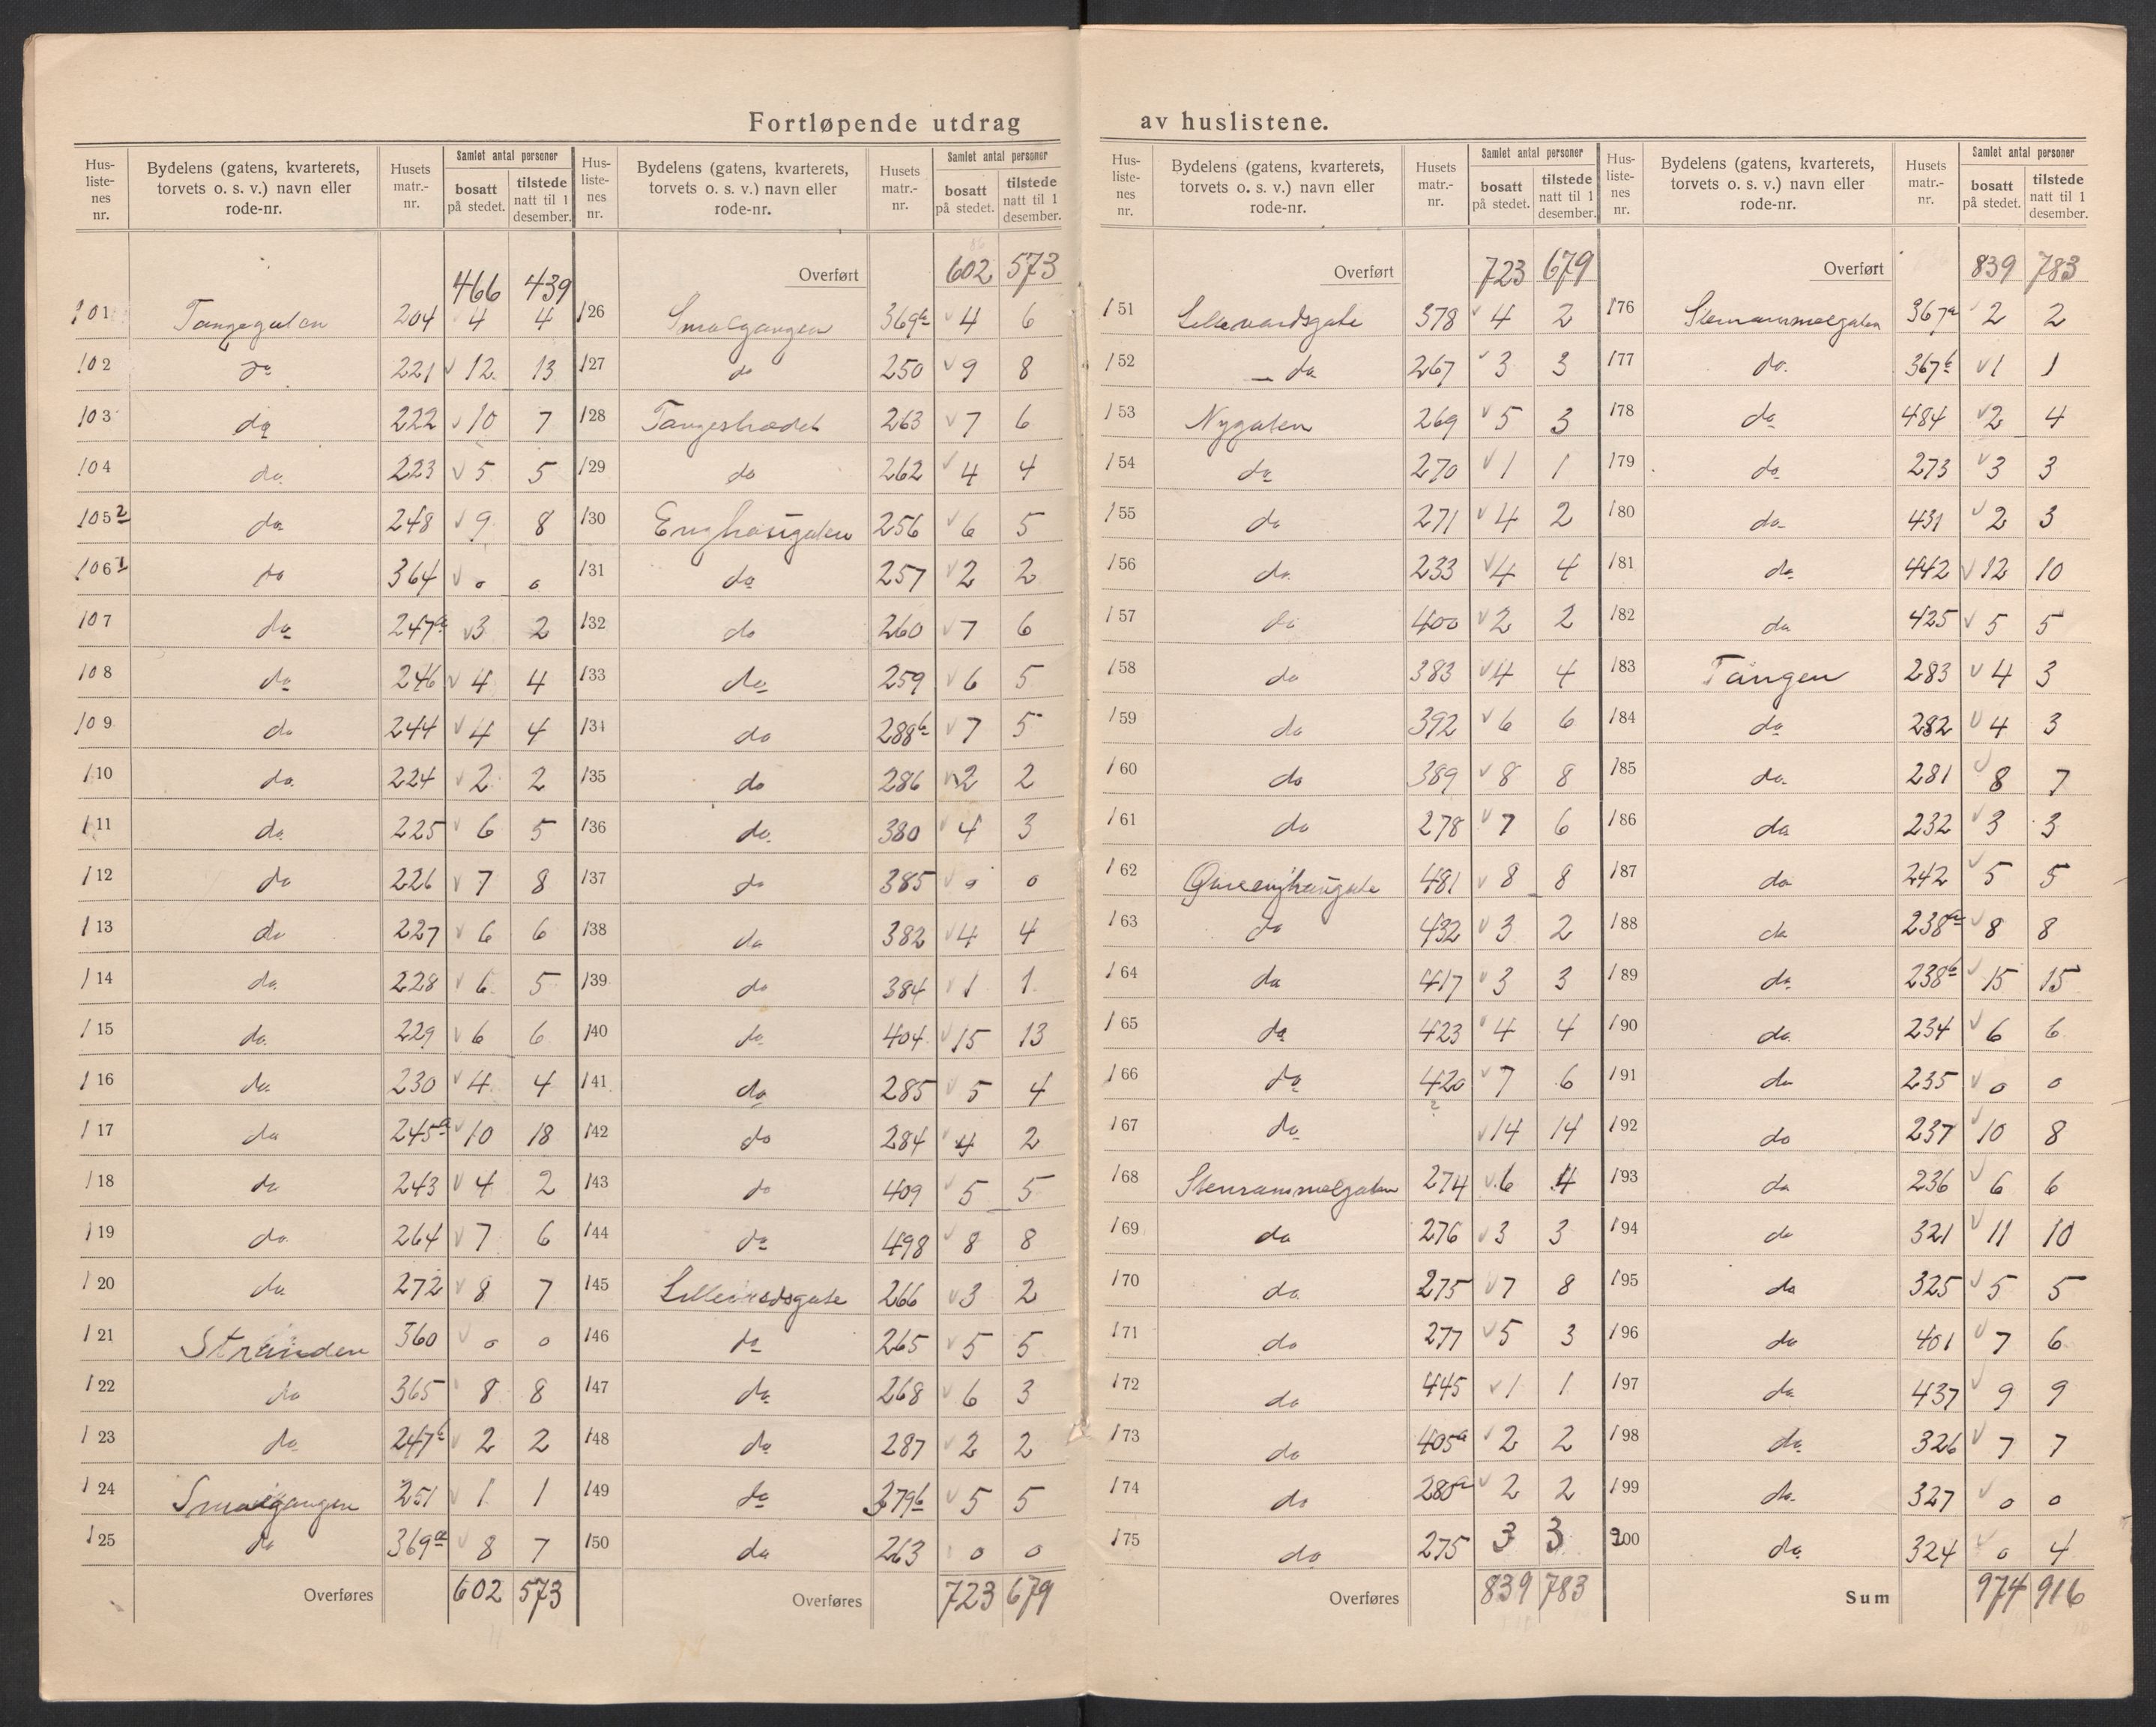 Fortløpende utdrag av huslistene.
Hus-liste-nes nr. | Bydelens (gatens, kvarterets, torvets o. s. v.) navn eller rode-nr. | Husets matr.-nr. | Samlet antal personer bosatt på stedet. | tilstede natt til 1 desember.
466 439
101 Tangegaten 204 4 4
102 do 221 12 13
103 do 222 10 7
104 do 223 5 5
105 2 do 248 9 8
106 1 do 364 0 0
107 do 247a 3 2
108 do 246 4 4
109 do 244 4 4
110 do 224 2 2
111 do 225 6 5
112 do 226 7 8
113 do 227 6 6
114 do 228 6 5
115 do 229 6 6
116 do 230 4 4
117 do 245a 10 18
118 do 243 4 2
119 do 264 7 6
120 do 272 8 7
121 Stranden 360 0 0
122 do 365 8 8
123 do 247b 2 2
124 Smalgangen 251 1 1
125 do 369a 8 7
Overføres 602 573
Hus-liste-nes nr. | Bydelens (gatens, kvarterets, torvets o. s. v.) navn eller rode-nr. | Husets matr.-nr. | Samlet antal personer bosatt på stedet. | tilstede natt til 1 desember.
Overført 602 573
126 Smalgangen 369b 4 6
127 do 250 9 8
128 Tangestrædet 263 7 6
129 do 262 4 4
130 Enghaugaten 256 6 5
131 do 257 2 2
132 do 260 7 6
133 do 259 6 5
134 do 288b 7 5
135 do 286 2 2
136 do 380 4 3
137 do 385 0 0
138 do 382 4 4
139 do 384 1 1
140 do 404 15 13
141 do 285 5 4
142 do 284 4 2
143 do 409 5 5
144 do 498 8 8
145 266 3 2
146 do 265 5 5
147 do 268 6 3
148 do 287 2 2
149 do 379b 5 5
150 do 263 0 0
Overføres 723 679
Hus-liste-nes nr. | Bydelens (gatens, kvarterets, torvets o. s. v.) navn eller rode-nr. | Husets matr.-nr. | Samlet antal personer bosatt på stedet. | tilstede natt til 1 desember.
Overført 723 679
151 378 4 2
152 do 267 3 3
153 Nygaten 269 5 3
154 do 270 1 1
155 do 271 4 2
156 do 233 4 4
157 do 400 2 2
158 do 383 4 4
159 do 392 6 6
160 do 389 8 8
161 do 278 7 6
162 481 8 8
163 do 432 3 2
164 do 417 3 3
165 do 423 4 4
166 do 420 7 6
167 do 14 14
168 274 6 4
169 do 276 3 3
170 do 275 7 8
171 do 277 5 3
172 do 445 1 1
173 do 405a 2 2
174 do 280a 2 2
175 do 275 3 3
Overføres 839 783
Hus-liste-nes nr. | Bydelens (gatens, kvarterets, torvets o. s. v.) navn eller rode-nr. | Husets matr.-nr. | Samlet antal personer bosatt på stedet. | tilstede natt til 1 desember.
Overført 839 783
176 367a 2 2
177 do 367b 1 1
178 do 484 2 4
179 do 273 3 3
180 do 431 2 3
181 do 442 12 10
182 do 425 5 5
183 Tangen 283 4 3
184 do 282 4 3
185 do 281 8 7
186 do 232 3 3
187 do 242 5 5
188 do 238a 8 8
189 do 238b 15 15
190 do 234 6 6
191 do 235 0 0
192 do 237 10 8
193 do 236 6 6
194 do 321 11 10
195 do 325 5 5
196 do 401 7 6
197 do 437 9 9
198 do 326 7 7
199 do 327 0 0
200 do 324 0 4
Sum 974 916